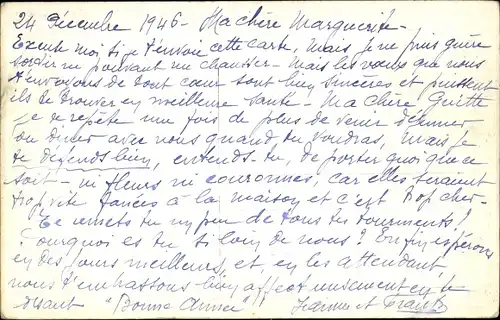 24 Décembre 1946 - Ma chère Marguerite -
Excuse moi si je t'envoie cette carte, mais je ne puis guère
sortir ne pouvant me chausser - mais les vœux que nous
t'envoyons de tout cœur sont bien sincères et puissent
ils te trouver en meilleure santé - Ma chère Guitte
je te répète une fois de plus de venir déjeuner
ou diner avec nous quand tu voudras, mais je
te défends bien, entends-tu, de porter quoi que ce
soit - ni fleurs ni couronnes, car elles seraient
trop vite fanées à la maison et c'est trop cher -
Te remets tu un peu de tous tes tourments ?
Pourquoi es tu si loin de nous ? Enfin espérons
en des jours meilleurs, et, en les attendant,
nous t'embrassons bien affectueusement en te
disant "Bonne Année" Jeanne et